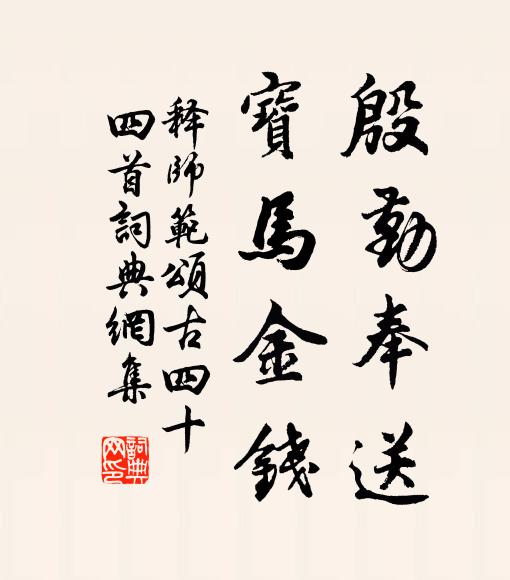 殷勤奉送
寶馬金錢
释師範頌古四十
四首詞典網集
詞典
网印